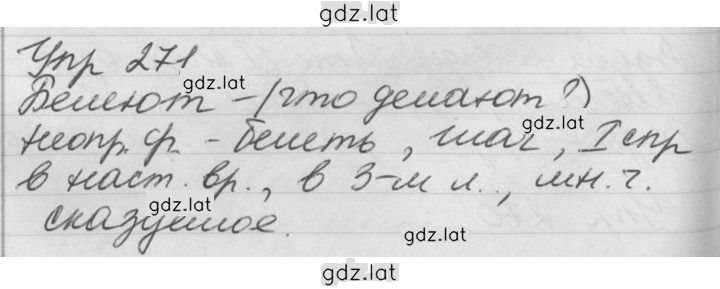 gdz.lat
Упр 271
gdz.lat
Белеют - (что делают?)
gdz.lat
неопр. ф. - белеть, глаг, I спр
в наст. вр., в 3-м л., мн. ч.
gdz.lat
сказуемое.
gdz.lat
gdz.lat